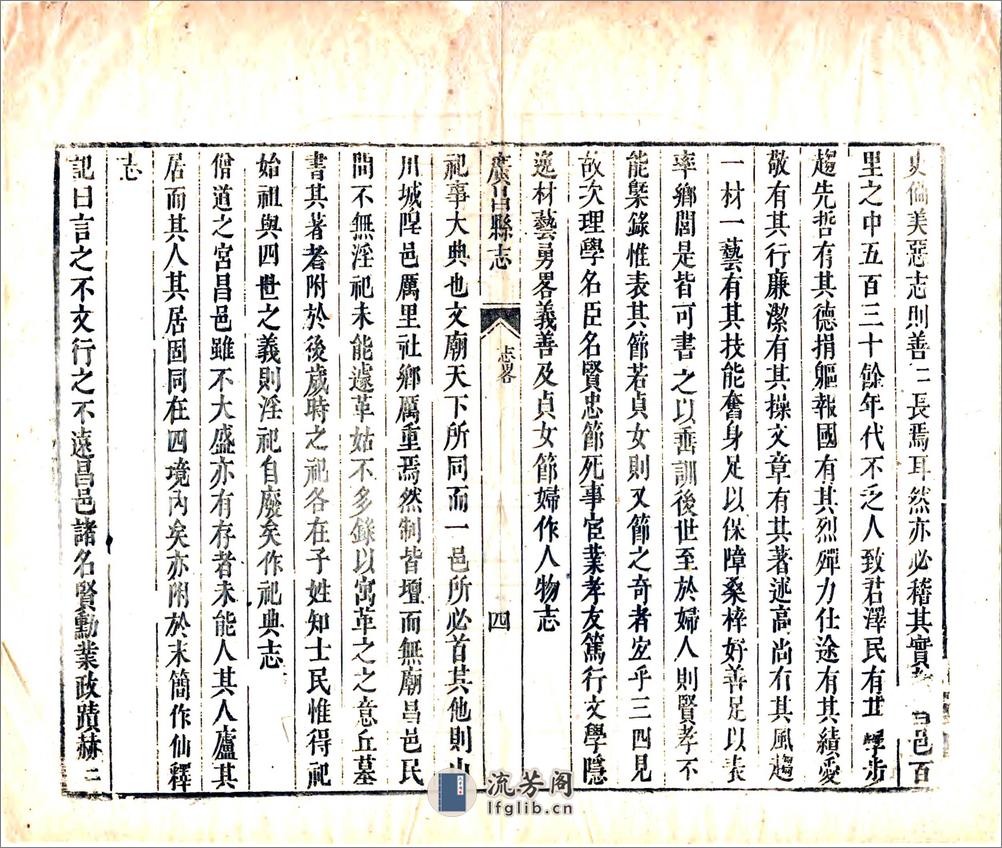 史倫美惡志則善善長焉耳然亦必稽其實昌邑百
里之中五百三十餘年代不乏人致君澤民有其學步
趨先哲有其德捐軀報國有其烈殫力仕途有其績愛
敬有其行廉潔有其操文章有其著述高尚有其風趨
一材一藝有其技能奮身足以保障桑梓好善足以表
率鄉閭是皆可書之以垂訓後世至於婦人則賢孝不
能槩錄惟表其節若貞女則又節之奇者空乎三四見
故次理學名臣名賢忠節死事宦業孝友篤行文學隱
逸材藝勇畧義善及貞女節婦作人物志
廣昌縣志
志畧
四
祀事大典也文廟天下所同而一邑所必首其他則山
川城隍邑厲里社鄉厲重焉然制皆壇而無廟昌邑民
間不無淫祀未能遽革姑不多錄以寓革之之意丘墓
書其著者附於後歲時之祀各在子姓知士民惟得祀
始祖與四世之義則淫祀自廢矣作祀典志
僧道之宮昌邑雖不大盛亦有存者未能人其人廬其
居而其人其居固同在四境內矣亦附於末簡作仙釋
志
記曰言之不文行之不遠昌邑諸名賢勳業政蹟赫二
流芳阁
lfglib.cn